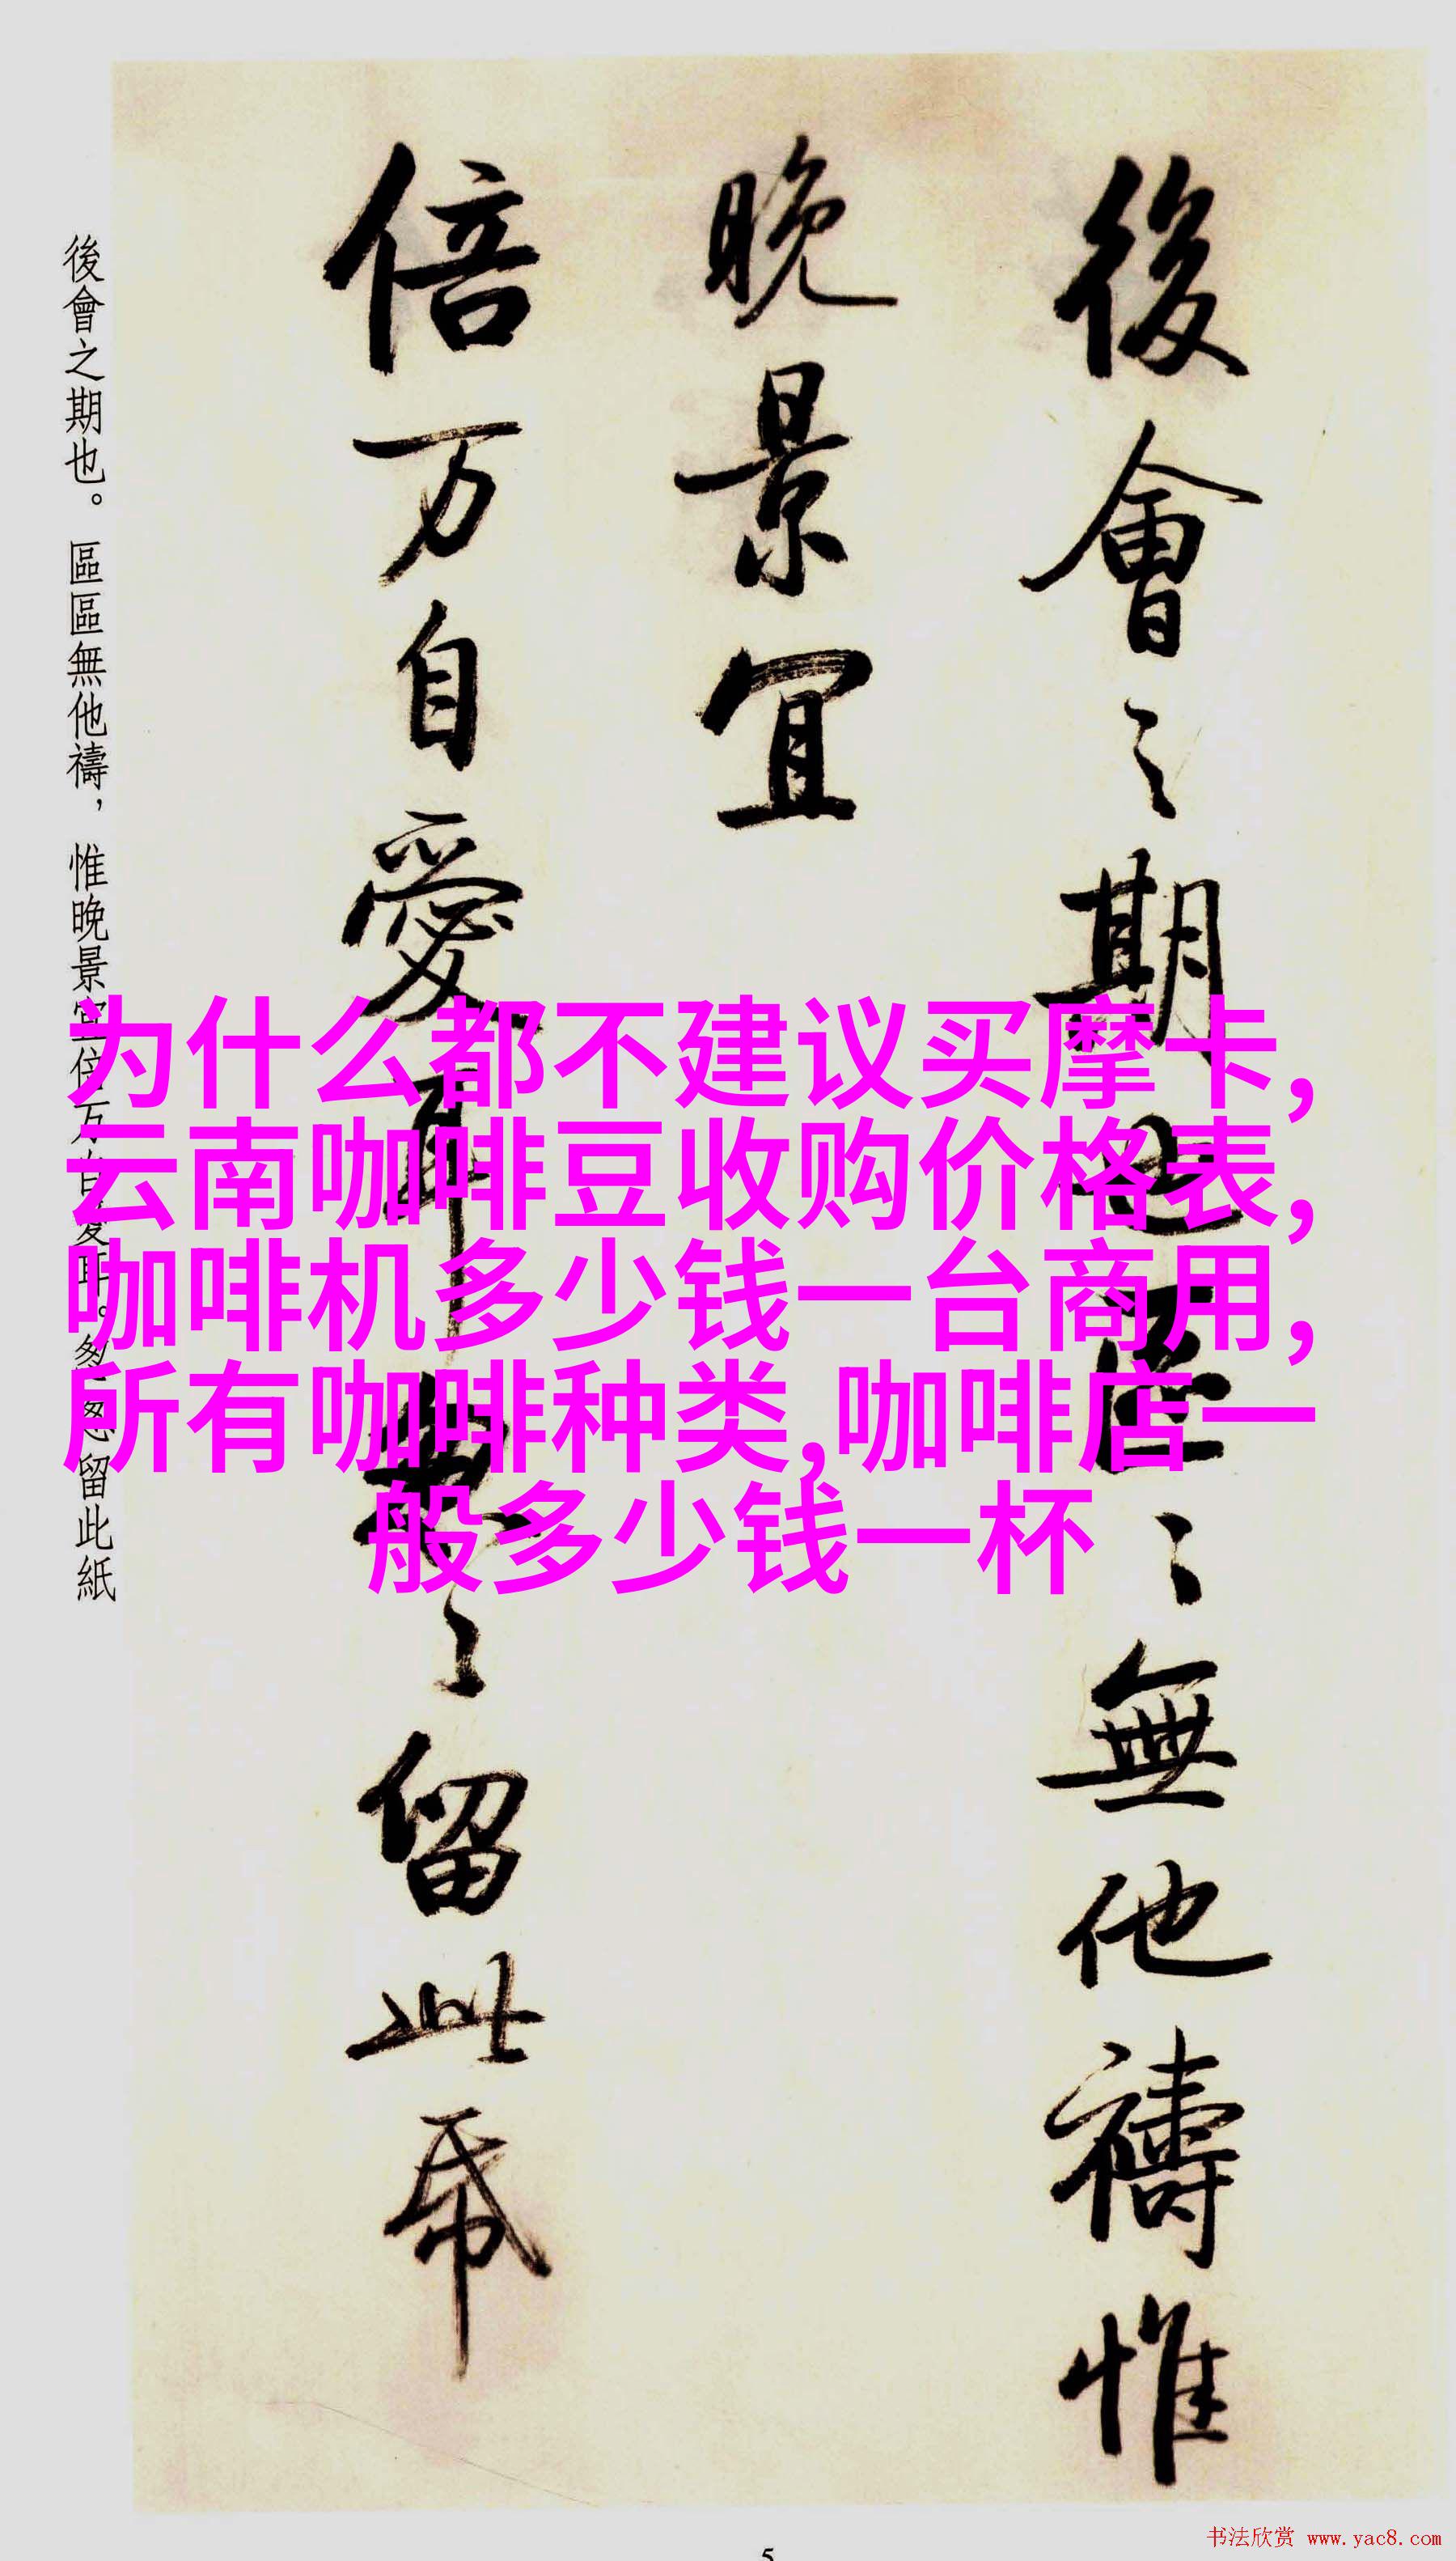 後會之期也區〻無他禱惟
晚景宜
倍万自愛耳怱〻留此帋
後會之期也。區區無他禱，惟晚景宜倍万自愛耳。怱怱留此紙
为什么都不建议买摩卡,
云南咖啡豆收购价格表,
咖啡机多少钱一台商用,
所有咖啡种类,咖啡店一
般多少钱一杯
书法欣赏 www.yac8.com
5